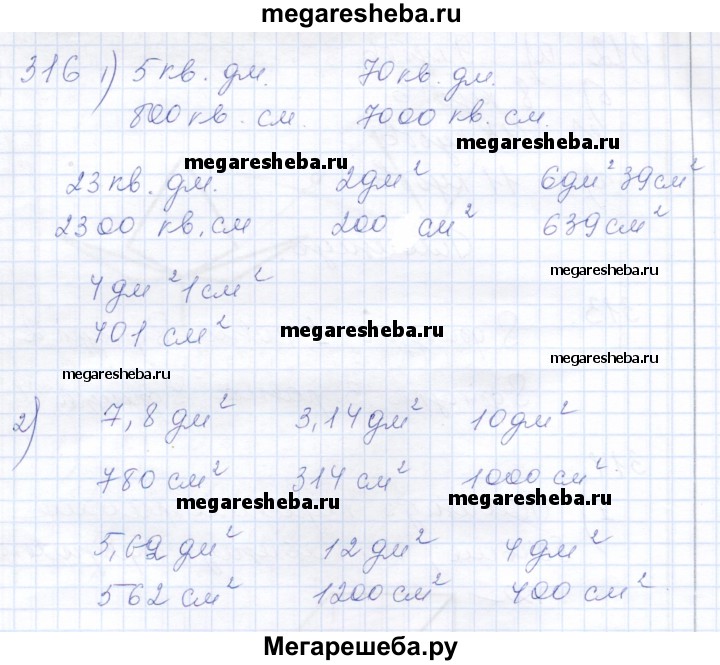 megaresheba.ru
316 1) 5 кв. дм. 70 кв. дм.
800 кв. см. 7000 кв. см.
megaresheba.ru
megaresheba.ru
23 кв. дм. 2 дм² 6 дм² 39 см²
2300 кв. см 200 см² 639 см²
megaresheba.ru
4 дм² 1 см²
401 см²
megaresheba.ru
megaresheba.ru
2) 7,8 дм² 3,14 дм² 10 дм²
780 см² 314 см² 1000 см²
megaresheba.ru
megaresheba.ru
5,62 дм² 12 дм² 4 дм²
562 см² 1200 см² 400 см²
Мегарешеба.ру